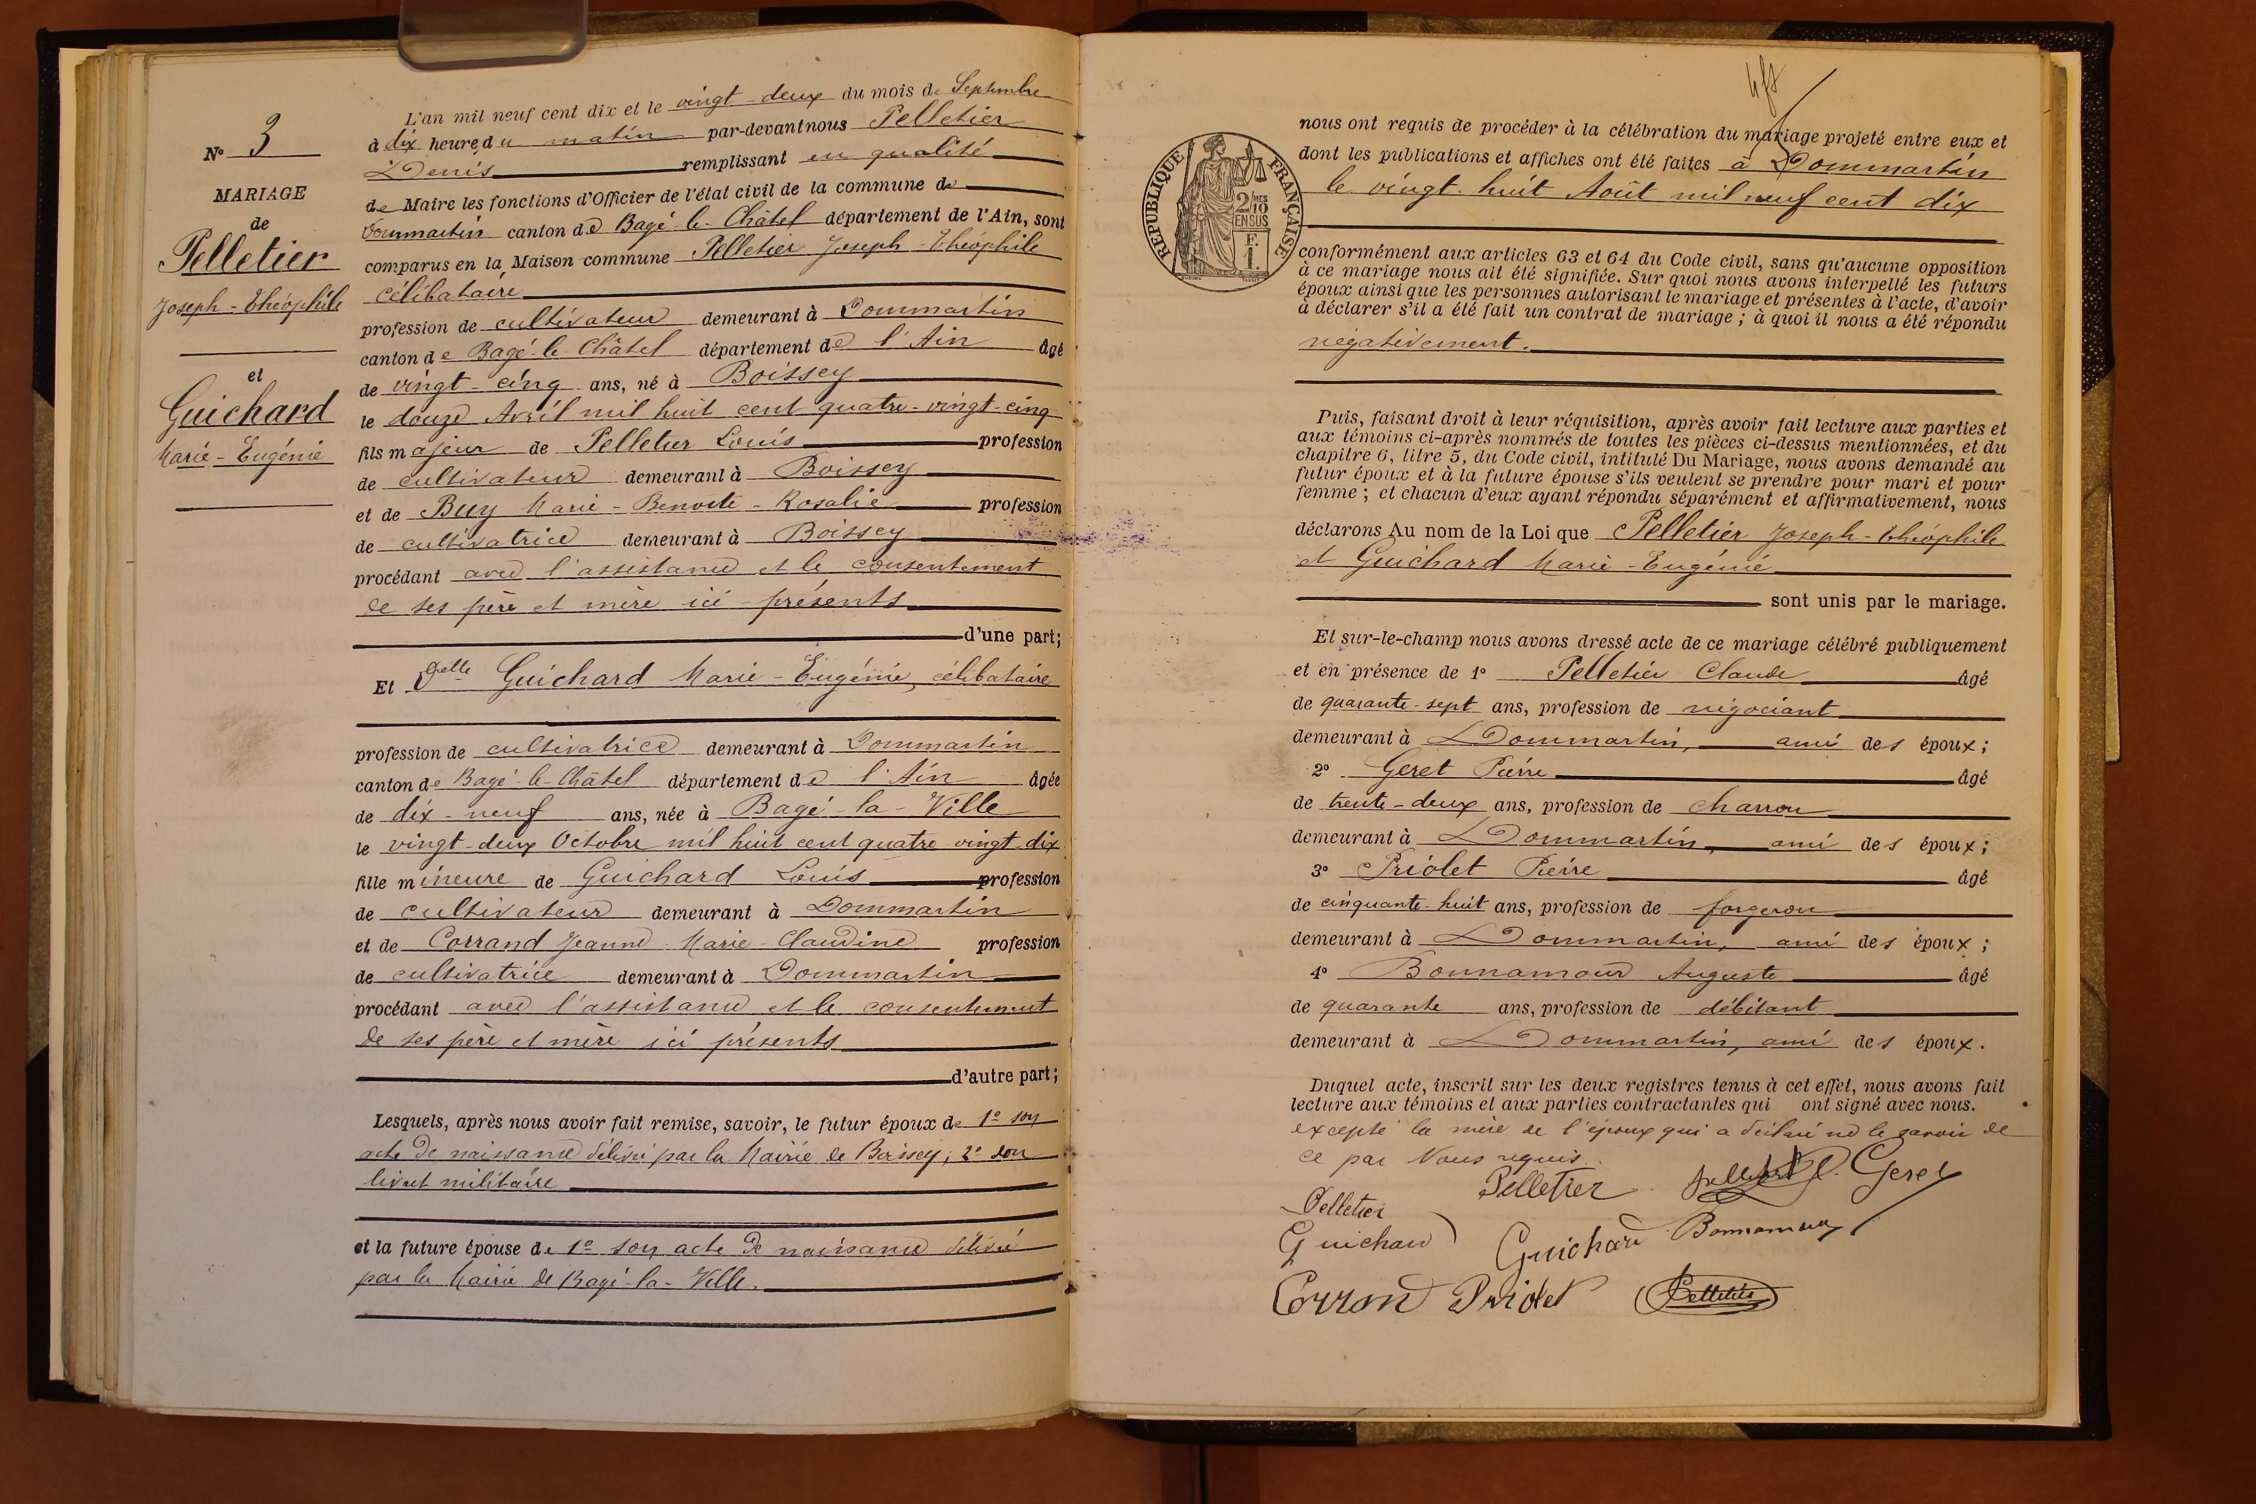 N° 3
MARIAGE
de
Pelletier
Joseph - Théophile
et
Guichard
Marie - Eugénie
L'an mil neuf cent dix et le vingt - deux du mois de Septembre
à dix heures du matin par-devant nous Pelletier
Denis remplissant en qualité
de Maire les fonctions d'Officier de l'état civil de la commune de
Dommartin canton de Bagé-le-Châtel département de l'Ain, sont
comparus en la Maison commune Pelletier Joseph - Théophile
célibataire
profession de cultivateur demeurant à Dommartin
canton de Bagé-le-Châtel département de l'Ain âgé
de vingt - cinq ans, né à Boissey
le douze Avril mil huit cent quatre-vingt-cinq
fils majeur de Pelletier Louis profession
de cultivateur demeurant à Boissey
et de Buy Marie - Benoite - Rosalie profession
de cultivatrice demeurant à Boissey
procédant avec l'assistance et le consentement
de ses père et mère ici - présents
d'une part;
Et Delle Guichard Marie - Eugénie, célibataire
profession de cultivatrice demeurant à Dommartin
canton de Bagé-le-Châtel département de l'Ain âgée
de dix - neuf ans, née à Bagé - la - Ville
le vingt-deux Octobre mil huit cent quatre vingt dix
fille mineure de Guichard Louis profession
de cultivateur demeurant à Dommartin
et de Corrand Jeanne Marie - Claudine profession
de cultivatrice demeurant à Dommartin
procédant avec l'assistance et le consentement
de ses père et mère ici présents
d'autre part;
Lesquels, après nous avoir fait remise, savoir, le futur époux de 1° son
acte de naissance délivré par la Mairie de Boissey; 2° son
livret militaire
et la future épouse de 1° son acte de naissance délivré
par la Mairie de Bagé-la-Ville.
RÉPUBLIQUE FRANÇAISE
2/10 EN SUS
F. 1.
nous ont requis de procéder à la célébration du mariage projeté entre eux et
dont les publications et affiches ont été faites à Dommartin
le vingt huit Août mil neuf cent dix
conformément aux articles 63 et 64 du Code civil, sans qu'aucune opposition
à ce mariage nous ait été signifiée. Sur quoi nous avons interpellé les futurs
époux ainsi que les personnes autorisant le mariage et présentes à l'acte, d'avoir
à déclarer s'il a été fait un contrat de mariage; à quoi il nous a été répondu
négativement.
Puis, faisant droit à leur réquisition, après avoir fait lecture aux parties et
aux témoins ci-après nommés de toutes les pièces ci-dessus mentionnées, et du
chapitre 6, titre 5, du Code civil, intitulé Du Mariage, nous avons demandé au
futur époux et à la future épouse s'ils veulent se prendre pour mari et pour
femme; et chacun d'eux ayant répondu séparément et affirmativement, nous
déclarons Au nom de la Loi que Pelletier Joseph - Théophile
et Guichard Marie - Eugénie
sont unis par le mariage.
Et sur-le-champ nous avons dressé acte de ce mariage célébré publiquement
et en présence de 1° Pelletier Claude âgé
de quarante - sept ans, profession de négociant
demeurant à Dommartin, ami des époux;
2° Geret Pierre âgé
de trente - deux ans, profession de charron
demeurant à Dommartin, ami des époux;
3° Priolet Pierre âgé
de cinquante-huit ans, profession de forgeron
demeurant à Dommartin, ami des époux;
4° Bonnamour Auguste âgé
de quarante ans, profession de débitant
demeurant à Dommartin, ami des époux.
Duquel acte, inscrit sur les deux registres tenus à cet effet, nous avons fait
lecture aux témoins et aux parties contractantes qui ont signé avec nous.
excepté la mère de l'époux qui a déclaré ne le savoir de
ce par Nous requis.
Pelletier Geret
Pelletier
Guichard Guichard Bonnamour
Corrand Priolet Pelletier